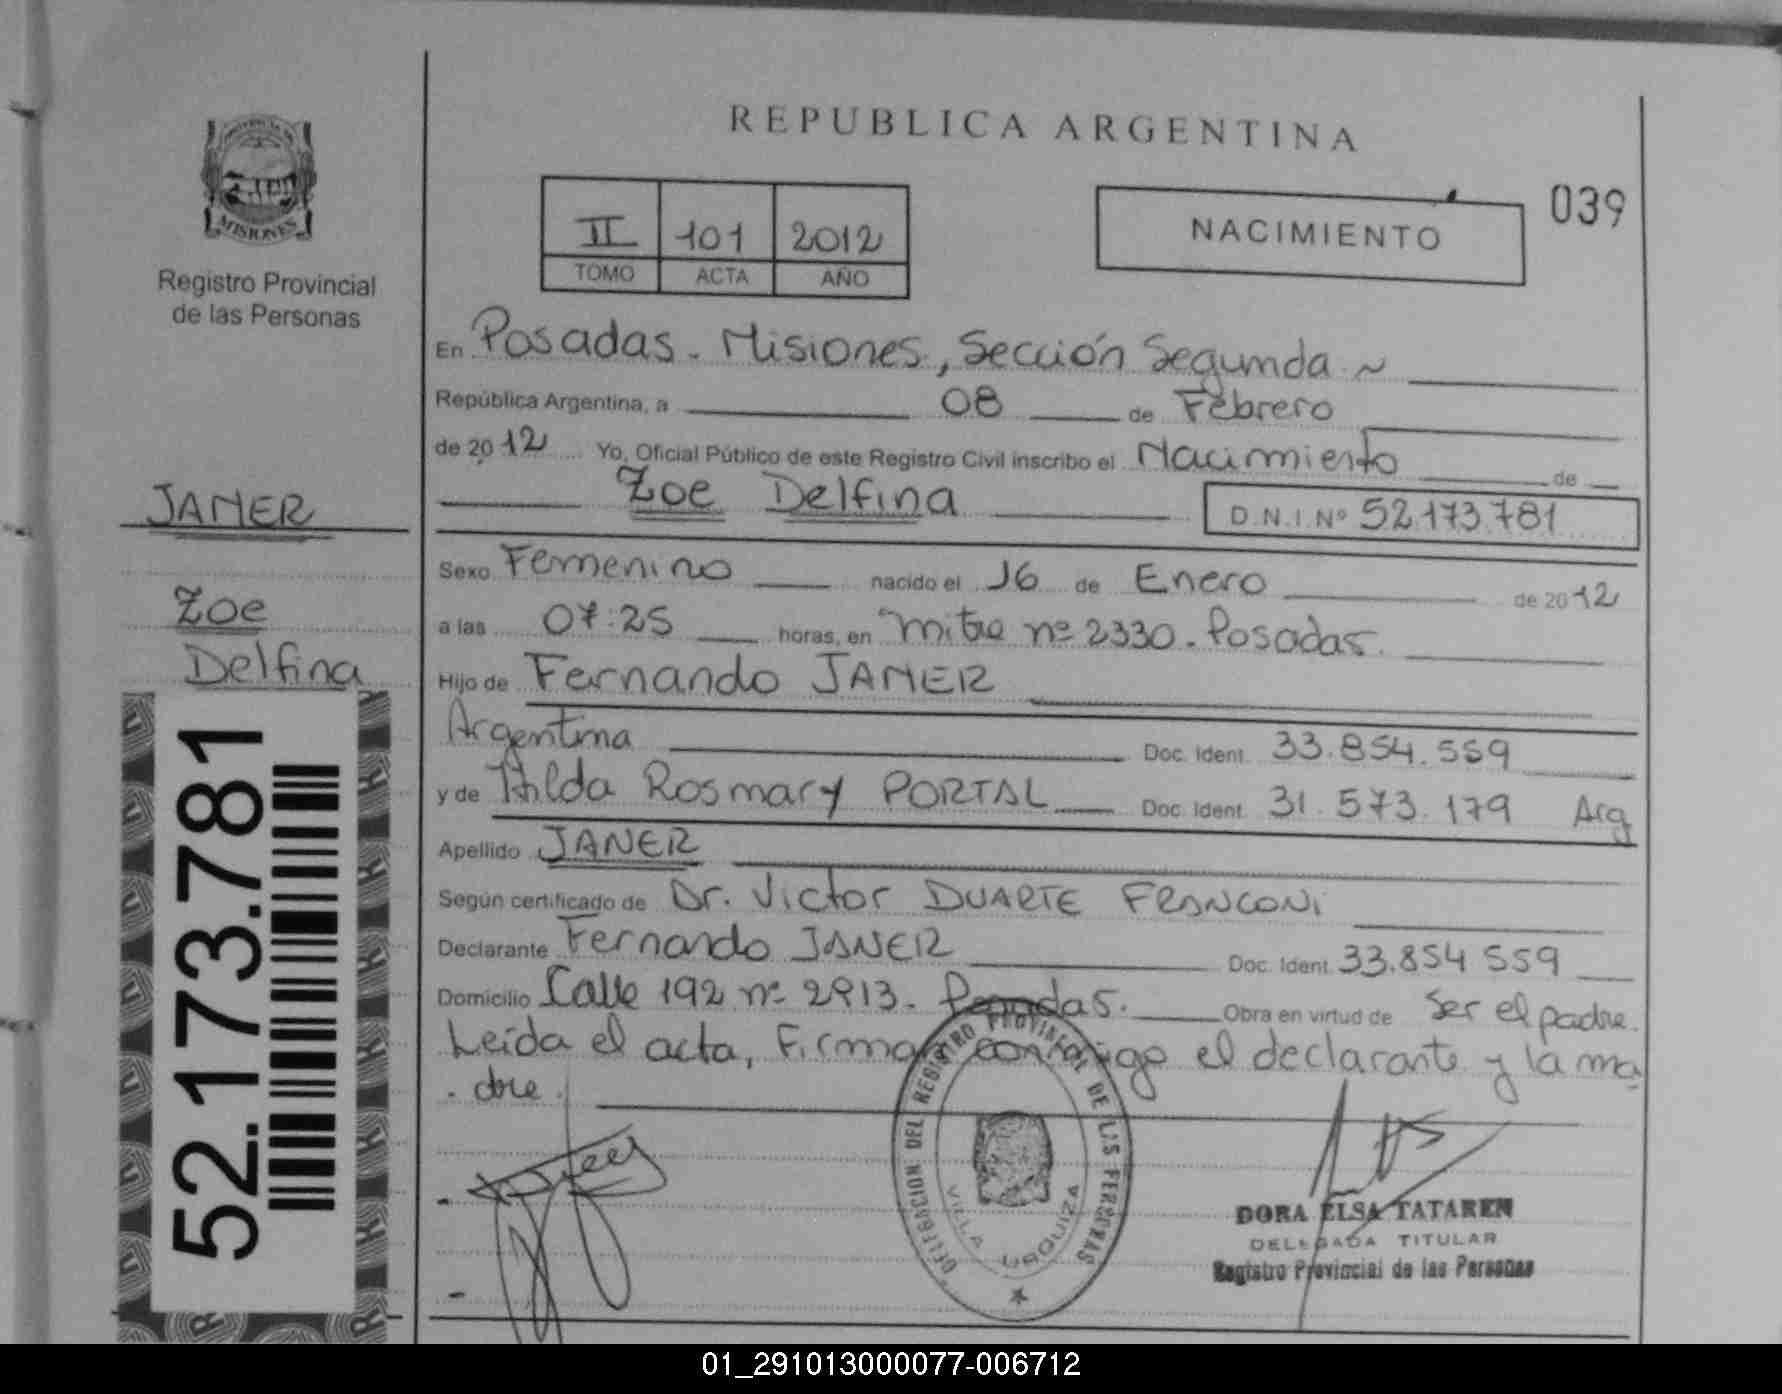 REPUBLICA ARGENTINA
PROVINCIA DE
MISIONES
Registro Provincial
de las Personas
II 101 2012
TOMO ACTA AÑO
NACIMIENTO
039
En Posadas. Misiones, Sección Segunda ~
República Argentina, a 08 de Febrero
de 2012 Yo, Oficial Público de este Registro Civil inscribo el Nacimiento de
Zoe Delfina D.N.I. Nº 52.173.781
JANER
Zoe
Delfina
52.173.781
Sexo Femenino nacido el 16 de Enero de 2012
a las 07:25 horas, en mitre nº 2330. Posadas.
Hijo de Fernando JANER
Argentina Doc. Ident. 33.854.559
y de Hilda Rosmary PORTAL Doc. Ident. 31.573.179 Arg
Apellido JANER
Según certificado de Dr. Victor DUARTE FRANCONI
Declarante Fernando JANER Doc. Ident. 33.854 559
Domicilio Calle 192 nº 2913. Posadas. Obra en virtud de Ser el padre.
Leída el acta, Firman conmigo el declarante y la ma
dre.
DELEGACION DEL REGISTRO PROVINCIAL DE LAS PERSONAS
VILLA URQUIZA
DORA ELSA TATAREN
DELEGADA TITULAR
Registro Provincial de las Personas
01_291013000077-006712